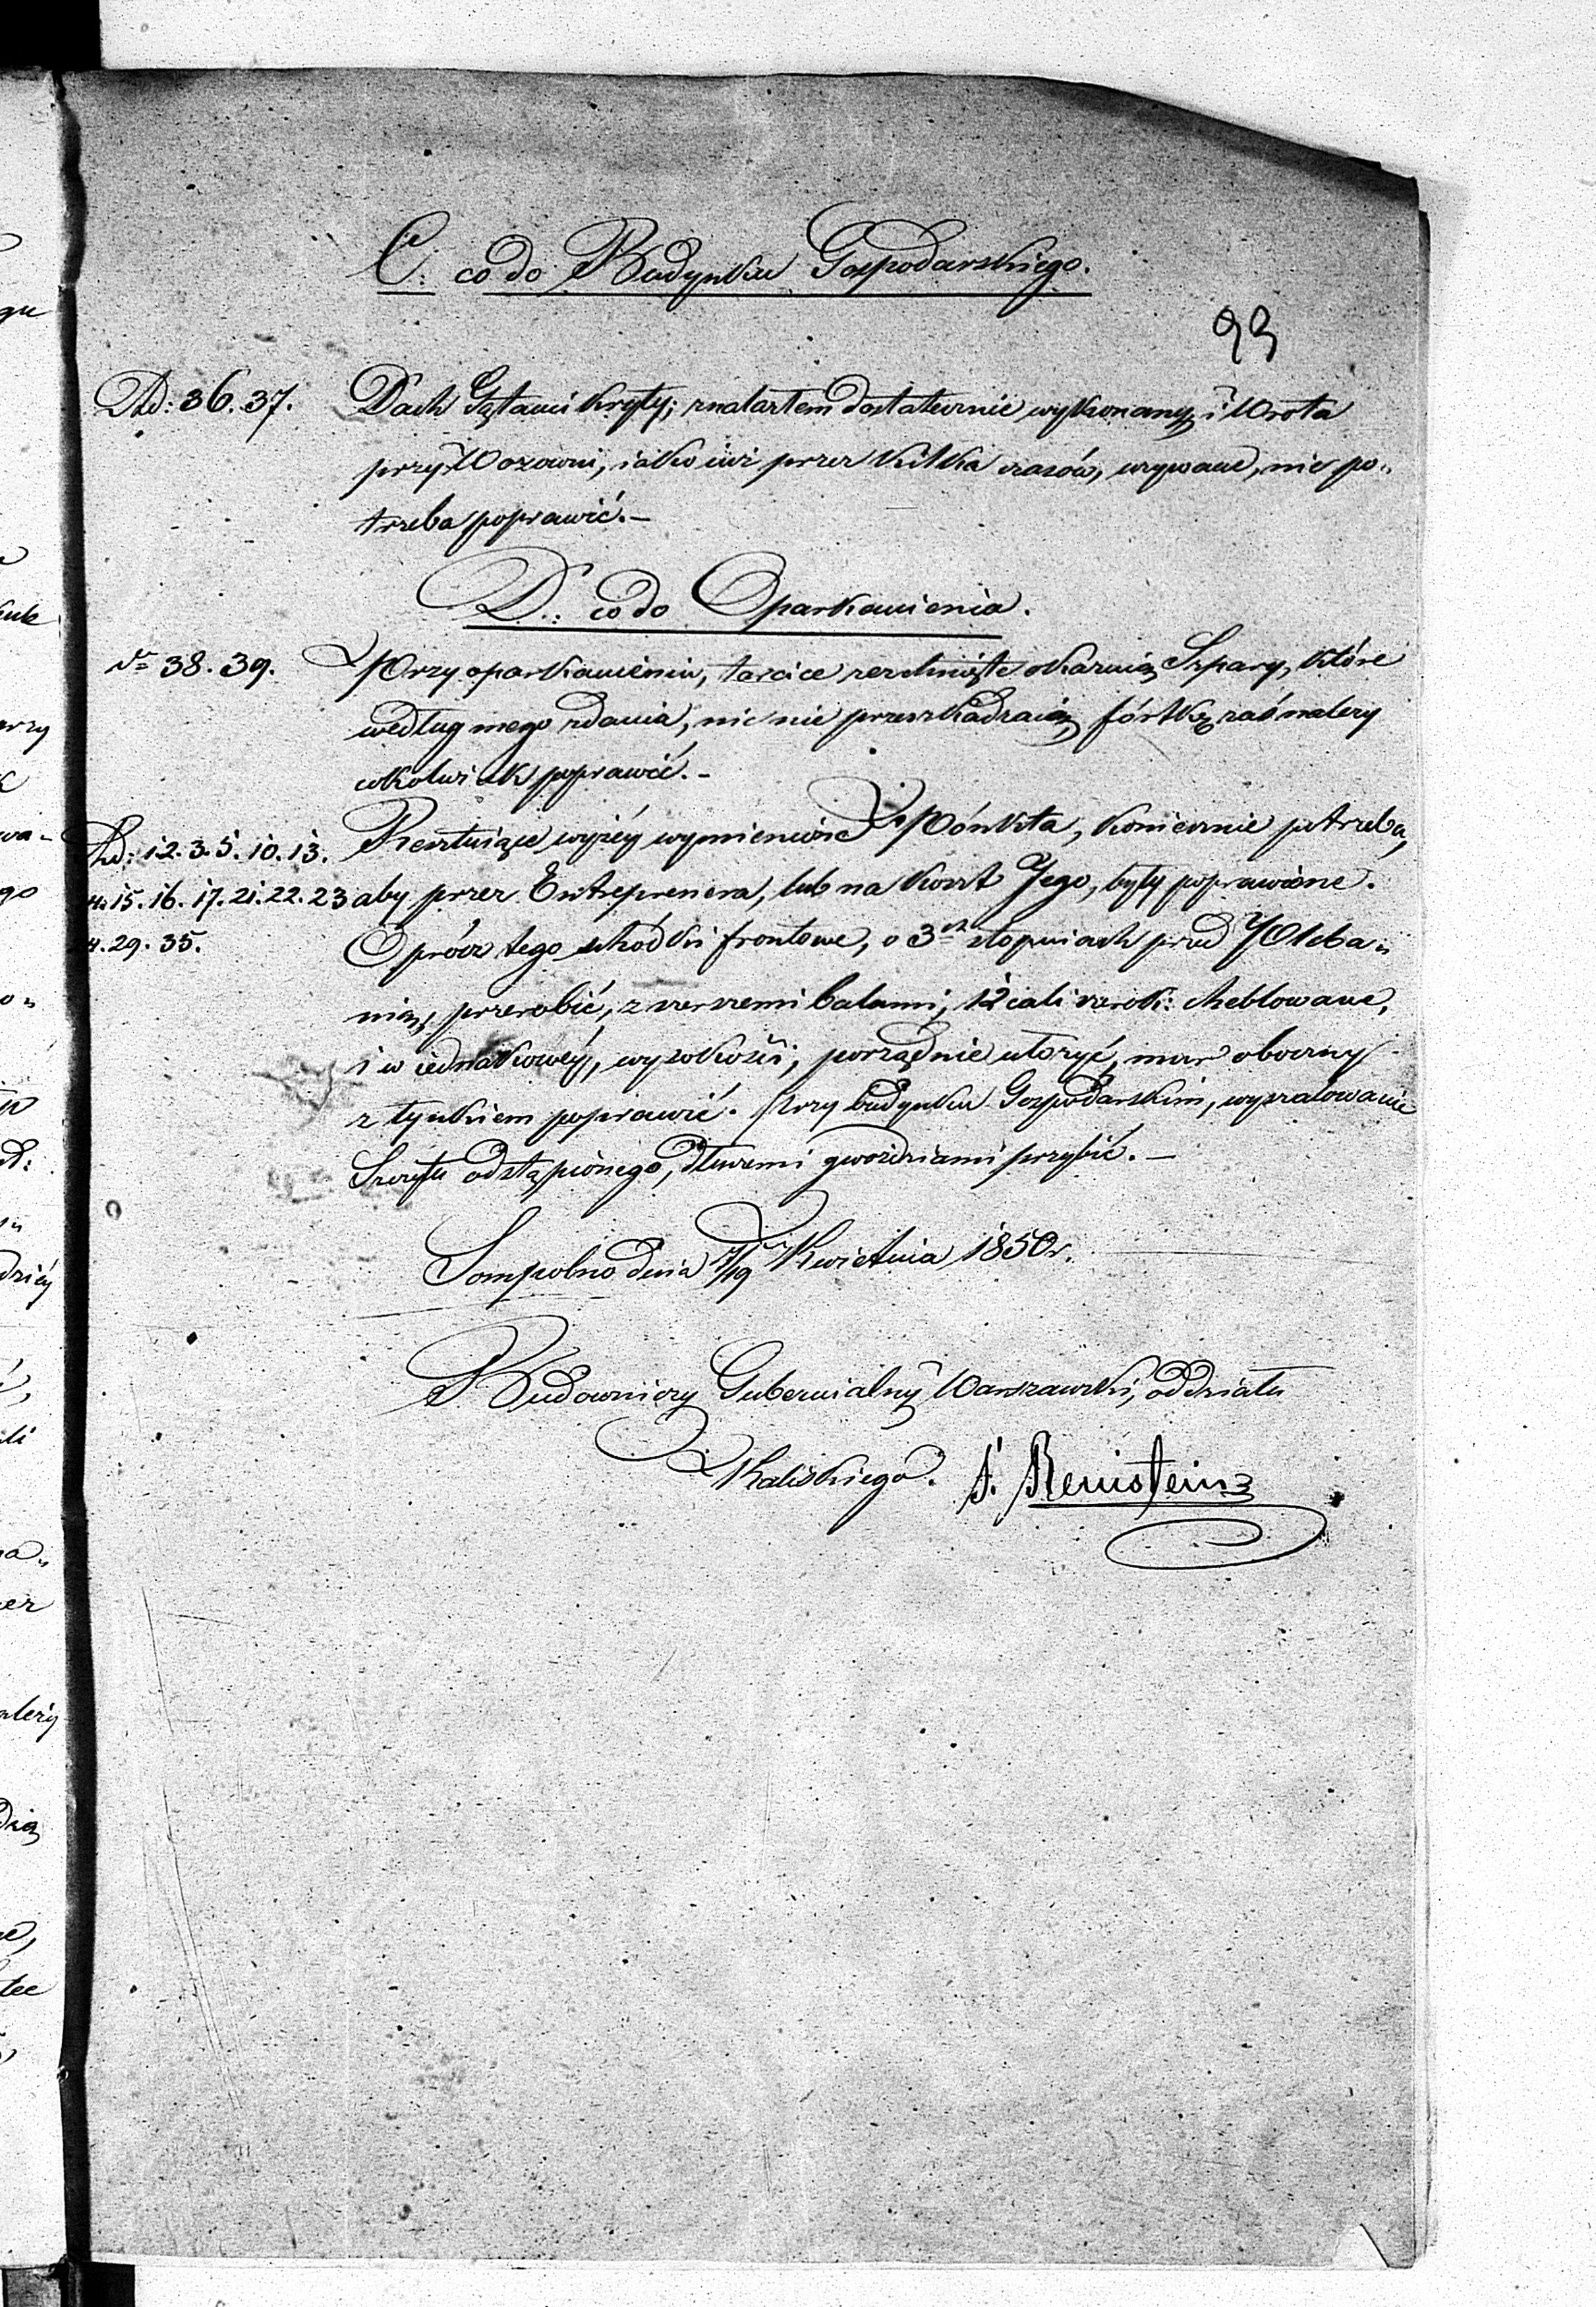 C. co do Budynku Gospodarskiego.
93
Ad: 36. 37. Dach Gątami kryty, znalazłem dostatecznie wykonany, i Wrota
przy Wozowni, iako iuż przez kilka czasów, używane, nie po„
trzeba poprawić.—
D.: co do Oparkanienia.
38. 39. Przy oparkanieniu, tarcice zeschnięte okazuią Szpary, które
według mego zdania, nic nie przeszkadzaią, fórtkę zaś należy
cokolwiek poprawić.—
Ad: 1. 2. 3. 5. 10. 13. Resztuiące wyżéy wymienione Pónkta, koniecznie potrzeba,
15. 16. 17. 21. 22. 23 aby przez Entreprenera, lub na koszt Jego, były poprawione.
29. 35. Oprócz tego schódki frontowe, o 3ch stopniach przed Pleba„
nią, przerobić, z szerszemi balami, 12 cali szerok: cheblowane,
i w iednakowéy, wysokości, porządnie utożyć, mur oboczny
z tynkiem poprawić. Przy budynku Gospodarskim, wyszalowanie
Szczytu odstąpionego, dłuższemi gwoździami przybić.—
Sompolno dnia 7/19 Kwietnia 1850 r.
Budowniczy Gubernialny Warszawski, oddziału
Kaliskiego. Bernstein